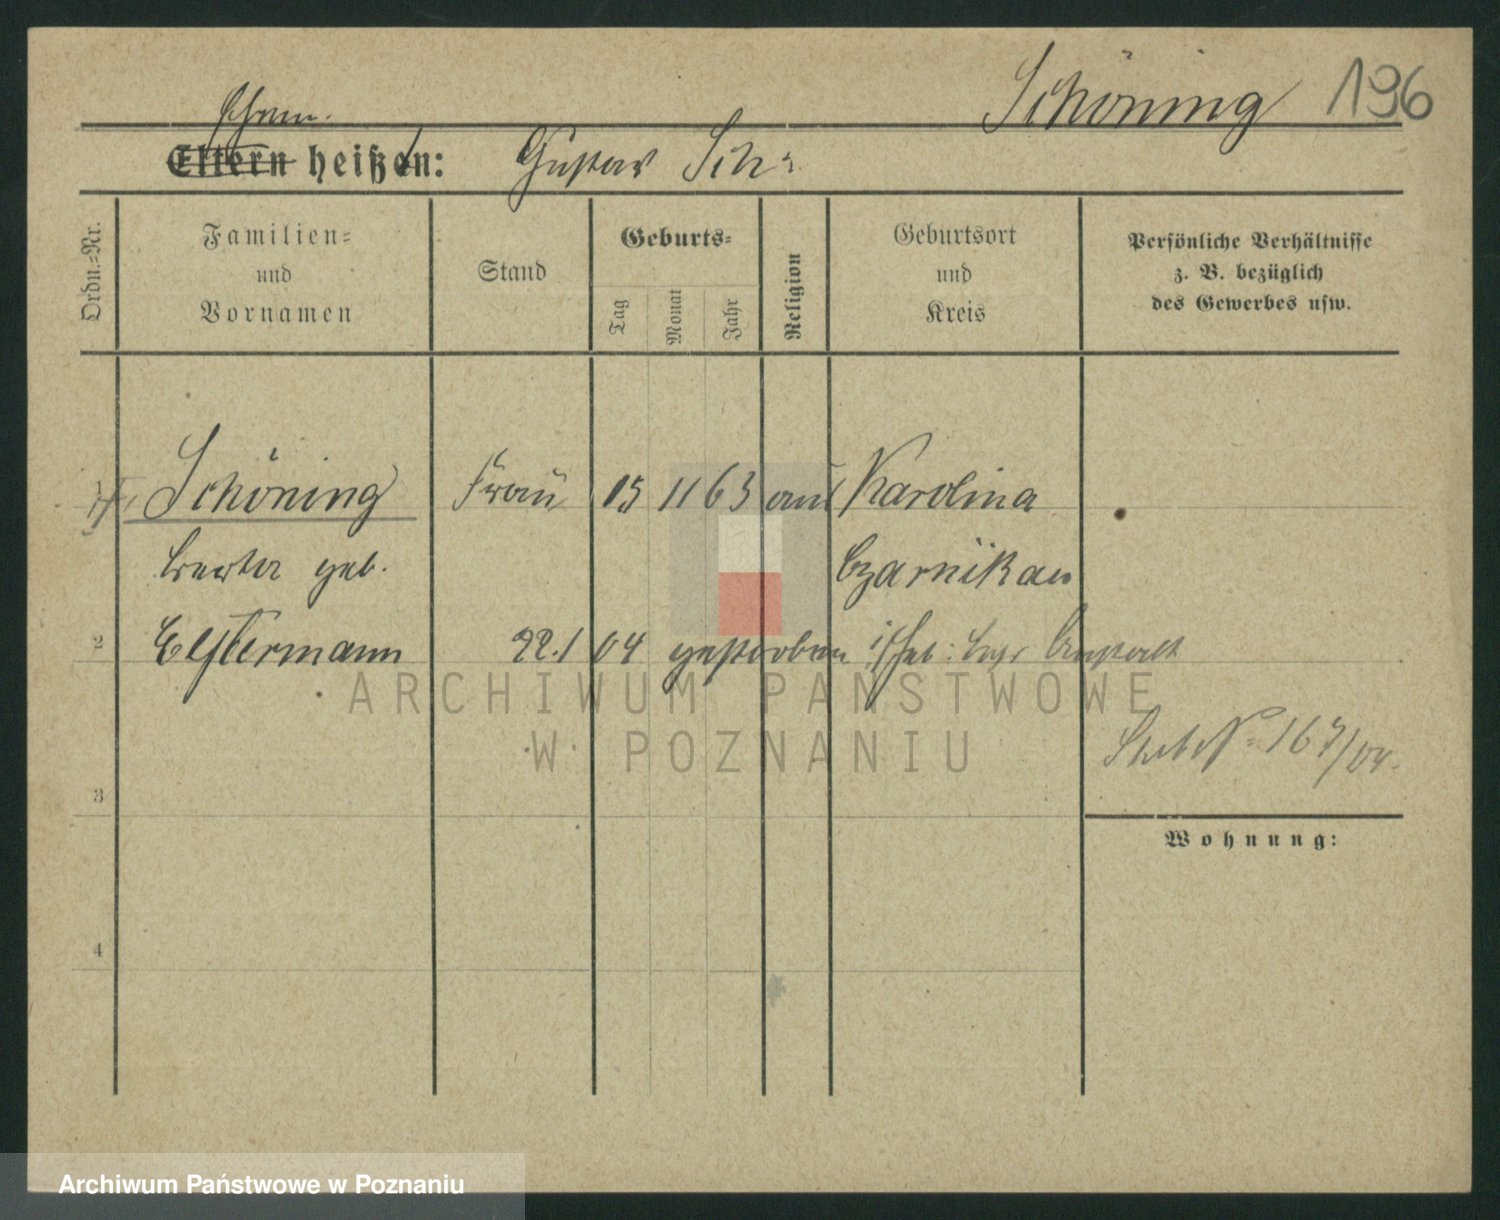 Schöning 196
Ehem.
Eltern heißen: Gustav Sch.
Ordn.=Nr.
Familien=
und
Vornamen
Stand
Geburts=
Tag
Monat
Jahr
Religion
Geburtsort
und
Kreis
Persönliche Verhältnisse
z. B. bezüglich
des Gewerbes usw.
1 Schöning Frau 15 11 63 Karolina
Berta geb. Czarnikau
2 Elstermann 22.1 04 gestorben
167/04.
3
Wohnung:
4
ARCHIWUM PAŃSTWOWE
W POZNANIU
Archiwum Państwowe w Poznaniu